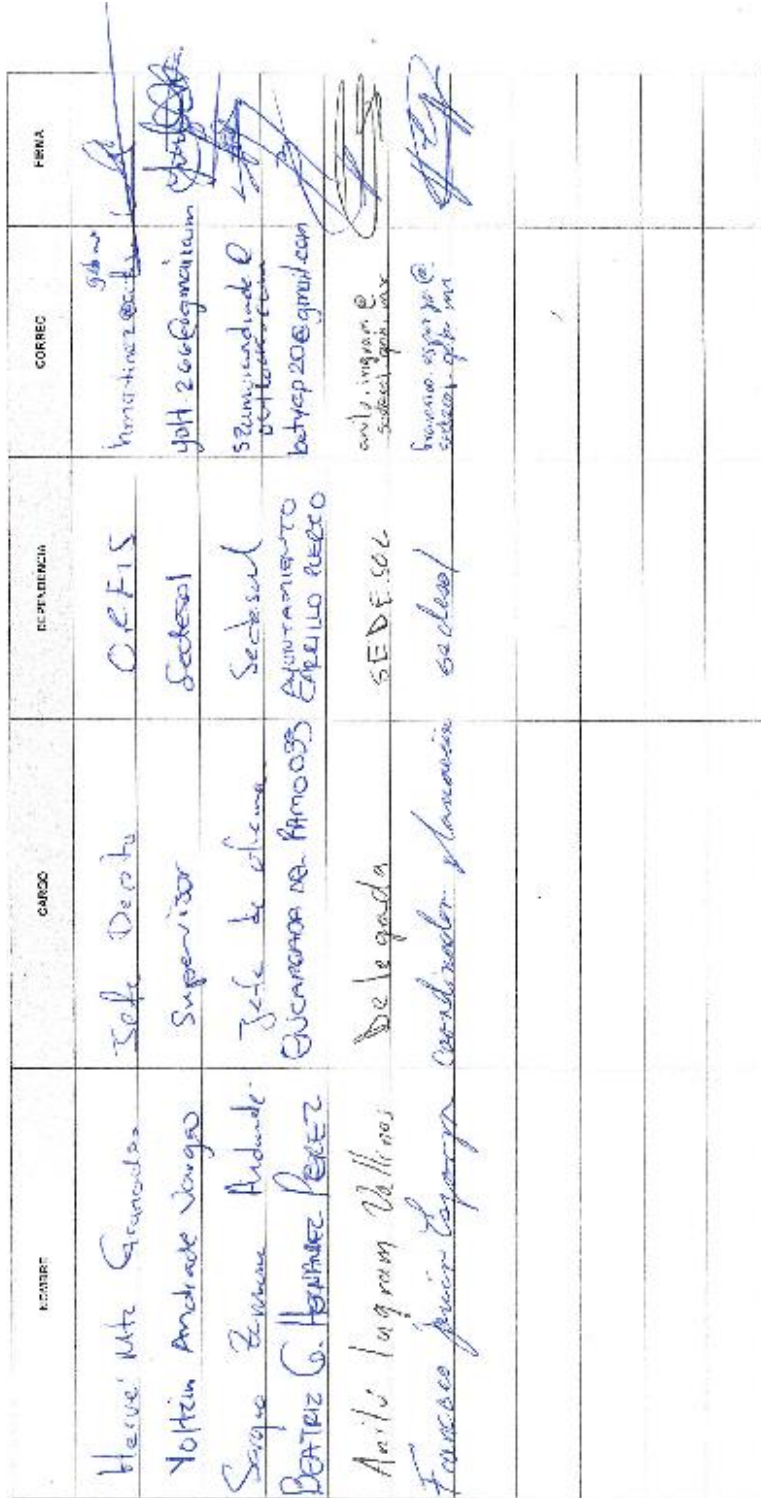 NOMBRE CARGO DEPENDENCIA CORREO FIRMA
Hervé Mtz Granados Jefe Depto O.R.F.I.S gob.mx
Yoltzin Andrade Vargas Supervisor Sedesol
Sergio Zamora Andrade Jefe de oficina Sedesol szamorandrade@
BEATRIZ G. HERNÁNDEZ PEREZ ENCARGADA DEL RAMO 033 AYUNTAMIENTO CARRILLO PUERTO batycp20@gmail.com
Anilú Ingram Vallines Delegada SEDESOL anilu.ingram@
sedesol.gob.mx
Francisco Javier Esparza coordinador planeación sedesol francisco.esparza@
sedesol.gob.mx